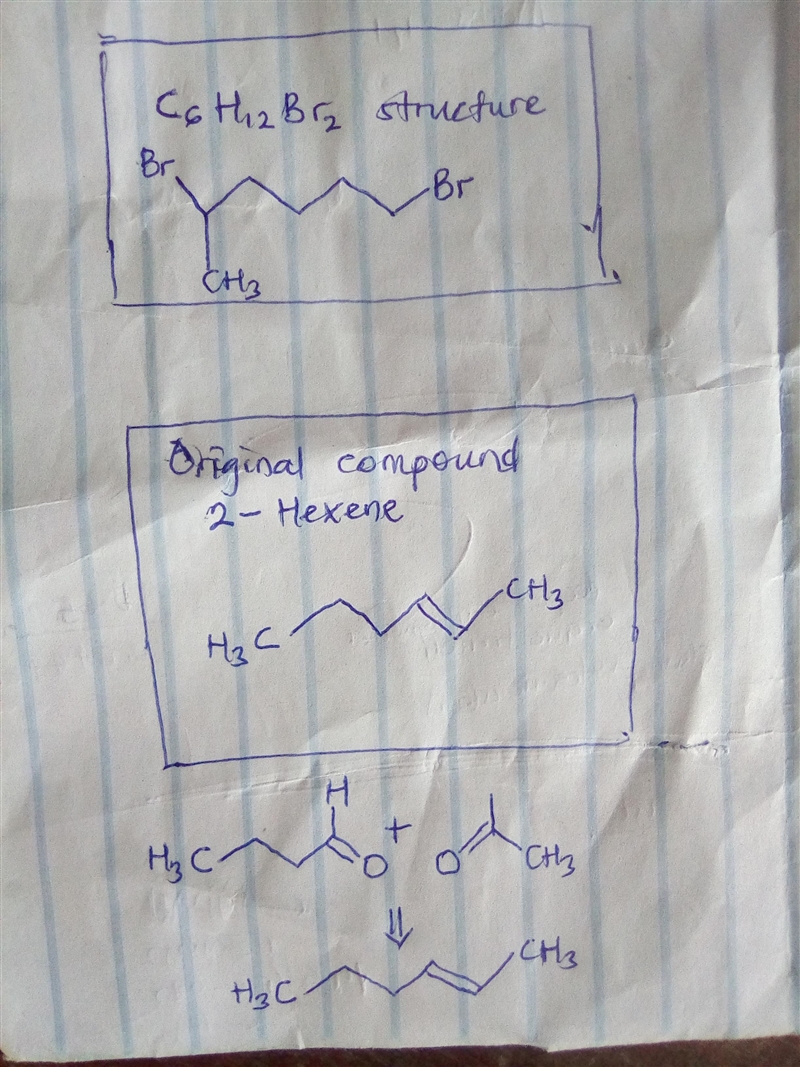 C₆H₁₂Br₂ structure
Br
Br
CH₃
Original compound
2-Hexene
CH₃
H₃C
H
+
H₃C
O
O
CH₃
⇓
CH₃
H₃C